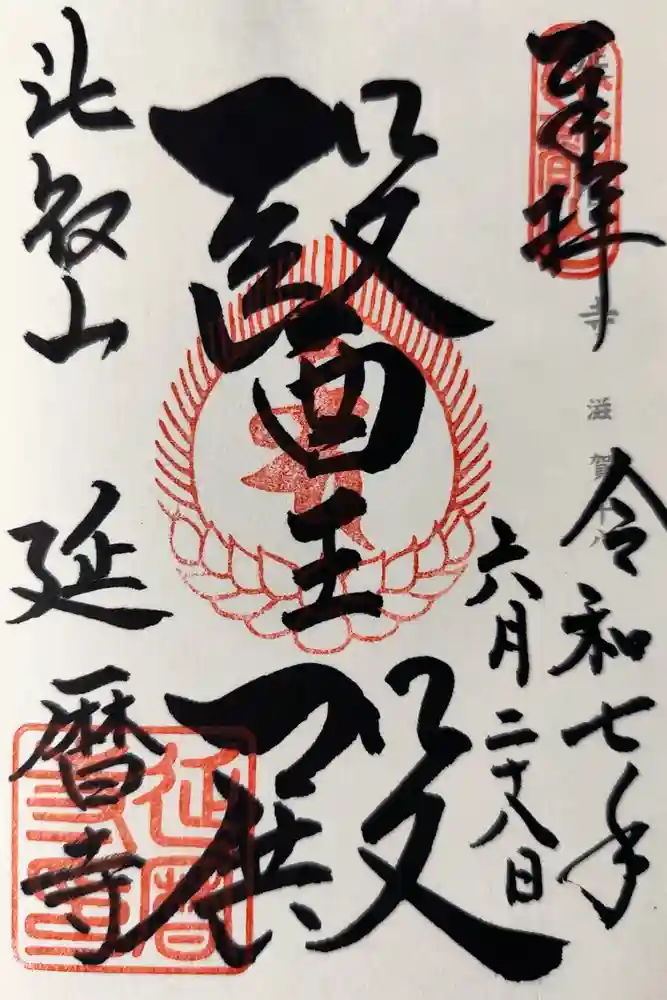 奉拝
令和七年
六月二十八日
醫王殿
比叡山
延暦寺
延暦
寺
滋賀
十八